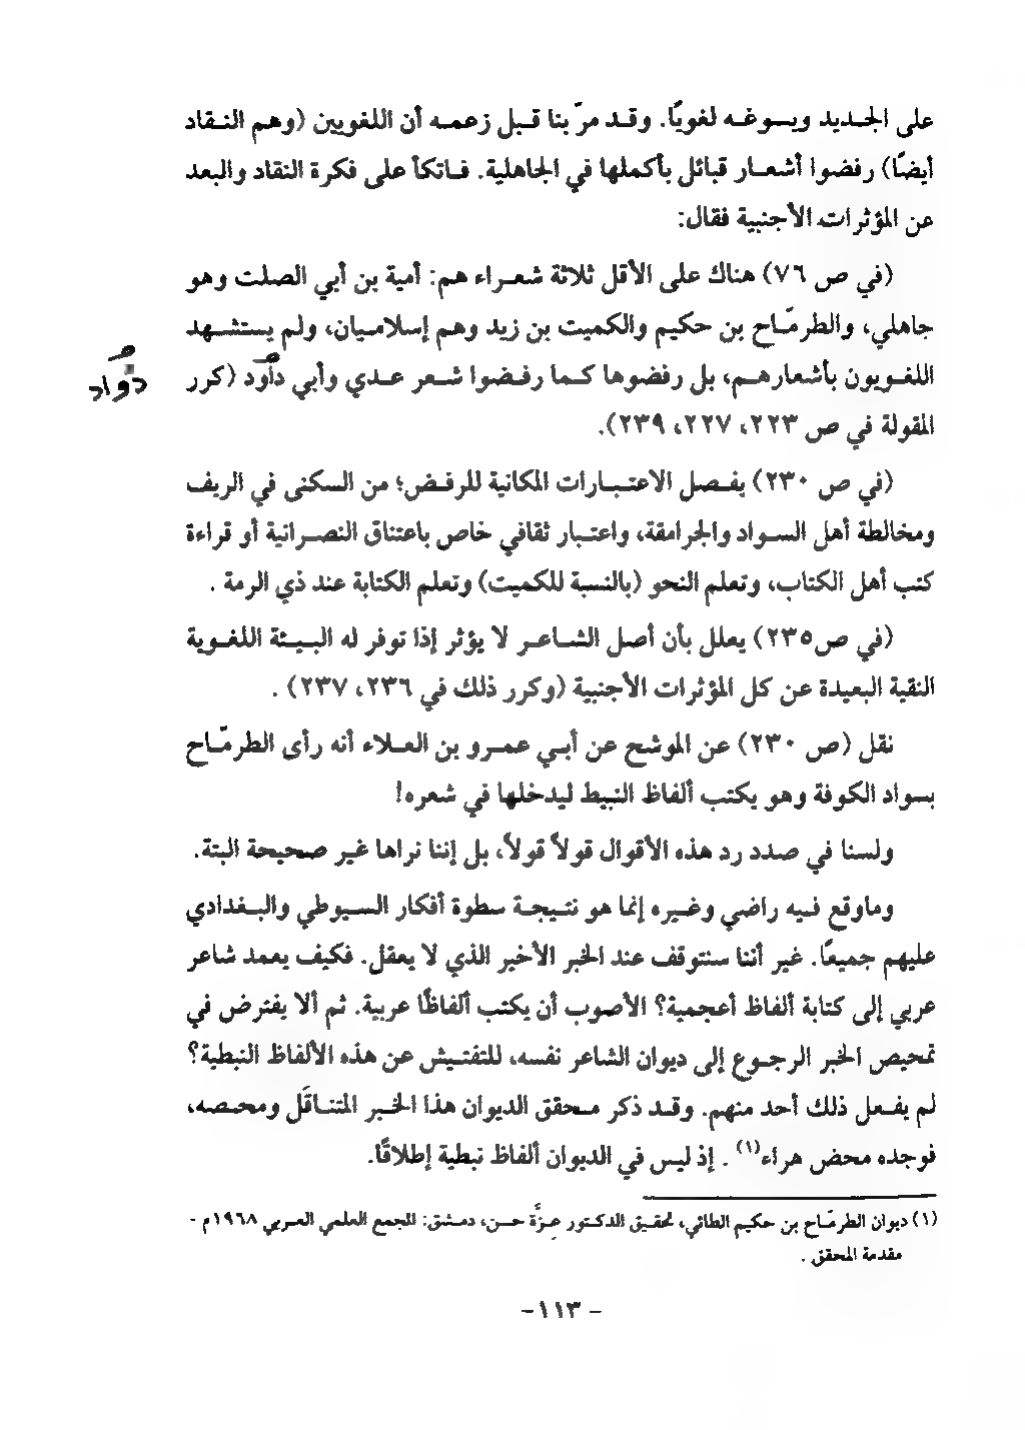 على الجديد ويسوغه لغويًا. وقد مرّ بنا قبل زعمه أن اللغويين (وهم النقاد
أيضًا) رفضوا أشعار قبائل بأكملها في الجاهلية. فاتكأ على فكرة النقاد والبعد
عن المؤثرات الأجنبية فقال:
(في ص ٧٦) هناك على الأقل ثلاثة شعراء هم: أمية بن أبي الصلت وهو
جاهلي، والطرمّاح بن حكيم والكميت بن زيد وهم إسلاميان، ولم يستشهد
اللغويون بأشعارهم، بل رفضوها كما رفضوا شعر عدي وأبي داُود (كرر
دُؤاد
المقولة في ص ٢٢٣، ٢٢٧، ٢٣٩).
(في ص ٢٣٠) يفصل الاعتبارات المكانية للرفض؛ من السكنى في الريف
ومخالطة أهل السواد والجرامقة، واعتبار ثقافي خاص باعتناق النصرانية أو قراءة
كتب أهل الكتاب، وتعلم النحو (بالنسبة للكميت) وتعلم الكتابة عند ذي الرمة .
(في ص٢٣٥) يعلل بأن أصل الشاعر لا يؤثر إذا توفر له البيئة اللغوية
النقية البعيدة عن كل المؤثرات الأجنبية (وكرر ذلك في ٢٣٦، ٢٣٧) .
نقل (ص ٢٣٠) عن الموشح عن أبي عمرو بن العلاء أنه رأى الطرمّاح
بسواد الكوفة وهو يكتب ألفاظ النبيط ليدخلها في شعره!
ولسنا في صدد رد هذه الأقوال قولاً قولاً، بل إننا نراها غير صحيحة البتة.
وماوقع فيه راضي وغيره إنما هو نتيجة سطوة أفكار السيوطي والبغدادي
عليهم جميعًا. غير أننا سنتوقف عند الخبر الأخير الذي لا يعقل. فكيف يعمد شاعر
عربي إلى كتابة ألفاظ أعجمية؟ الأصوب أن يكتب ألفاظًا عربية. ثم ألا يفترض في
تمحيص الخبر الرجوع إلى ديوان الشاعر نفسه، للتفتيش عن هذه الألفاظ النبطية؟
لم يفعل ذلك أحد منهم. وقد ذكر محقق الديوان هذا الخبر المتناقَل ومحصه،
فوجده محض هراء(١) . إذ ليس في الديوان ألفاظ نبطية إطلاقًا.
(١) ديوان الطرمّاح بن حكيم الطائي، تحقيق الدكتور عزَّة حسن، دمشق: المجمع العلمي العربي ١٩٦٨م -
مقدمة المحقق .
- ١١٣-